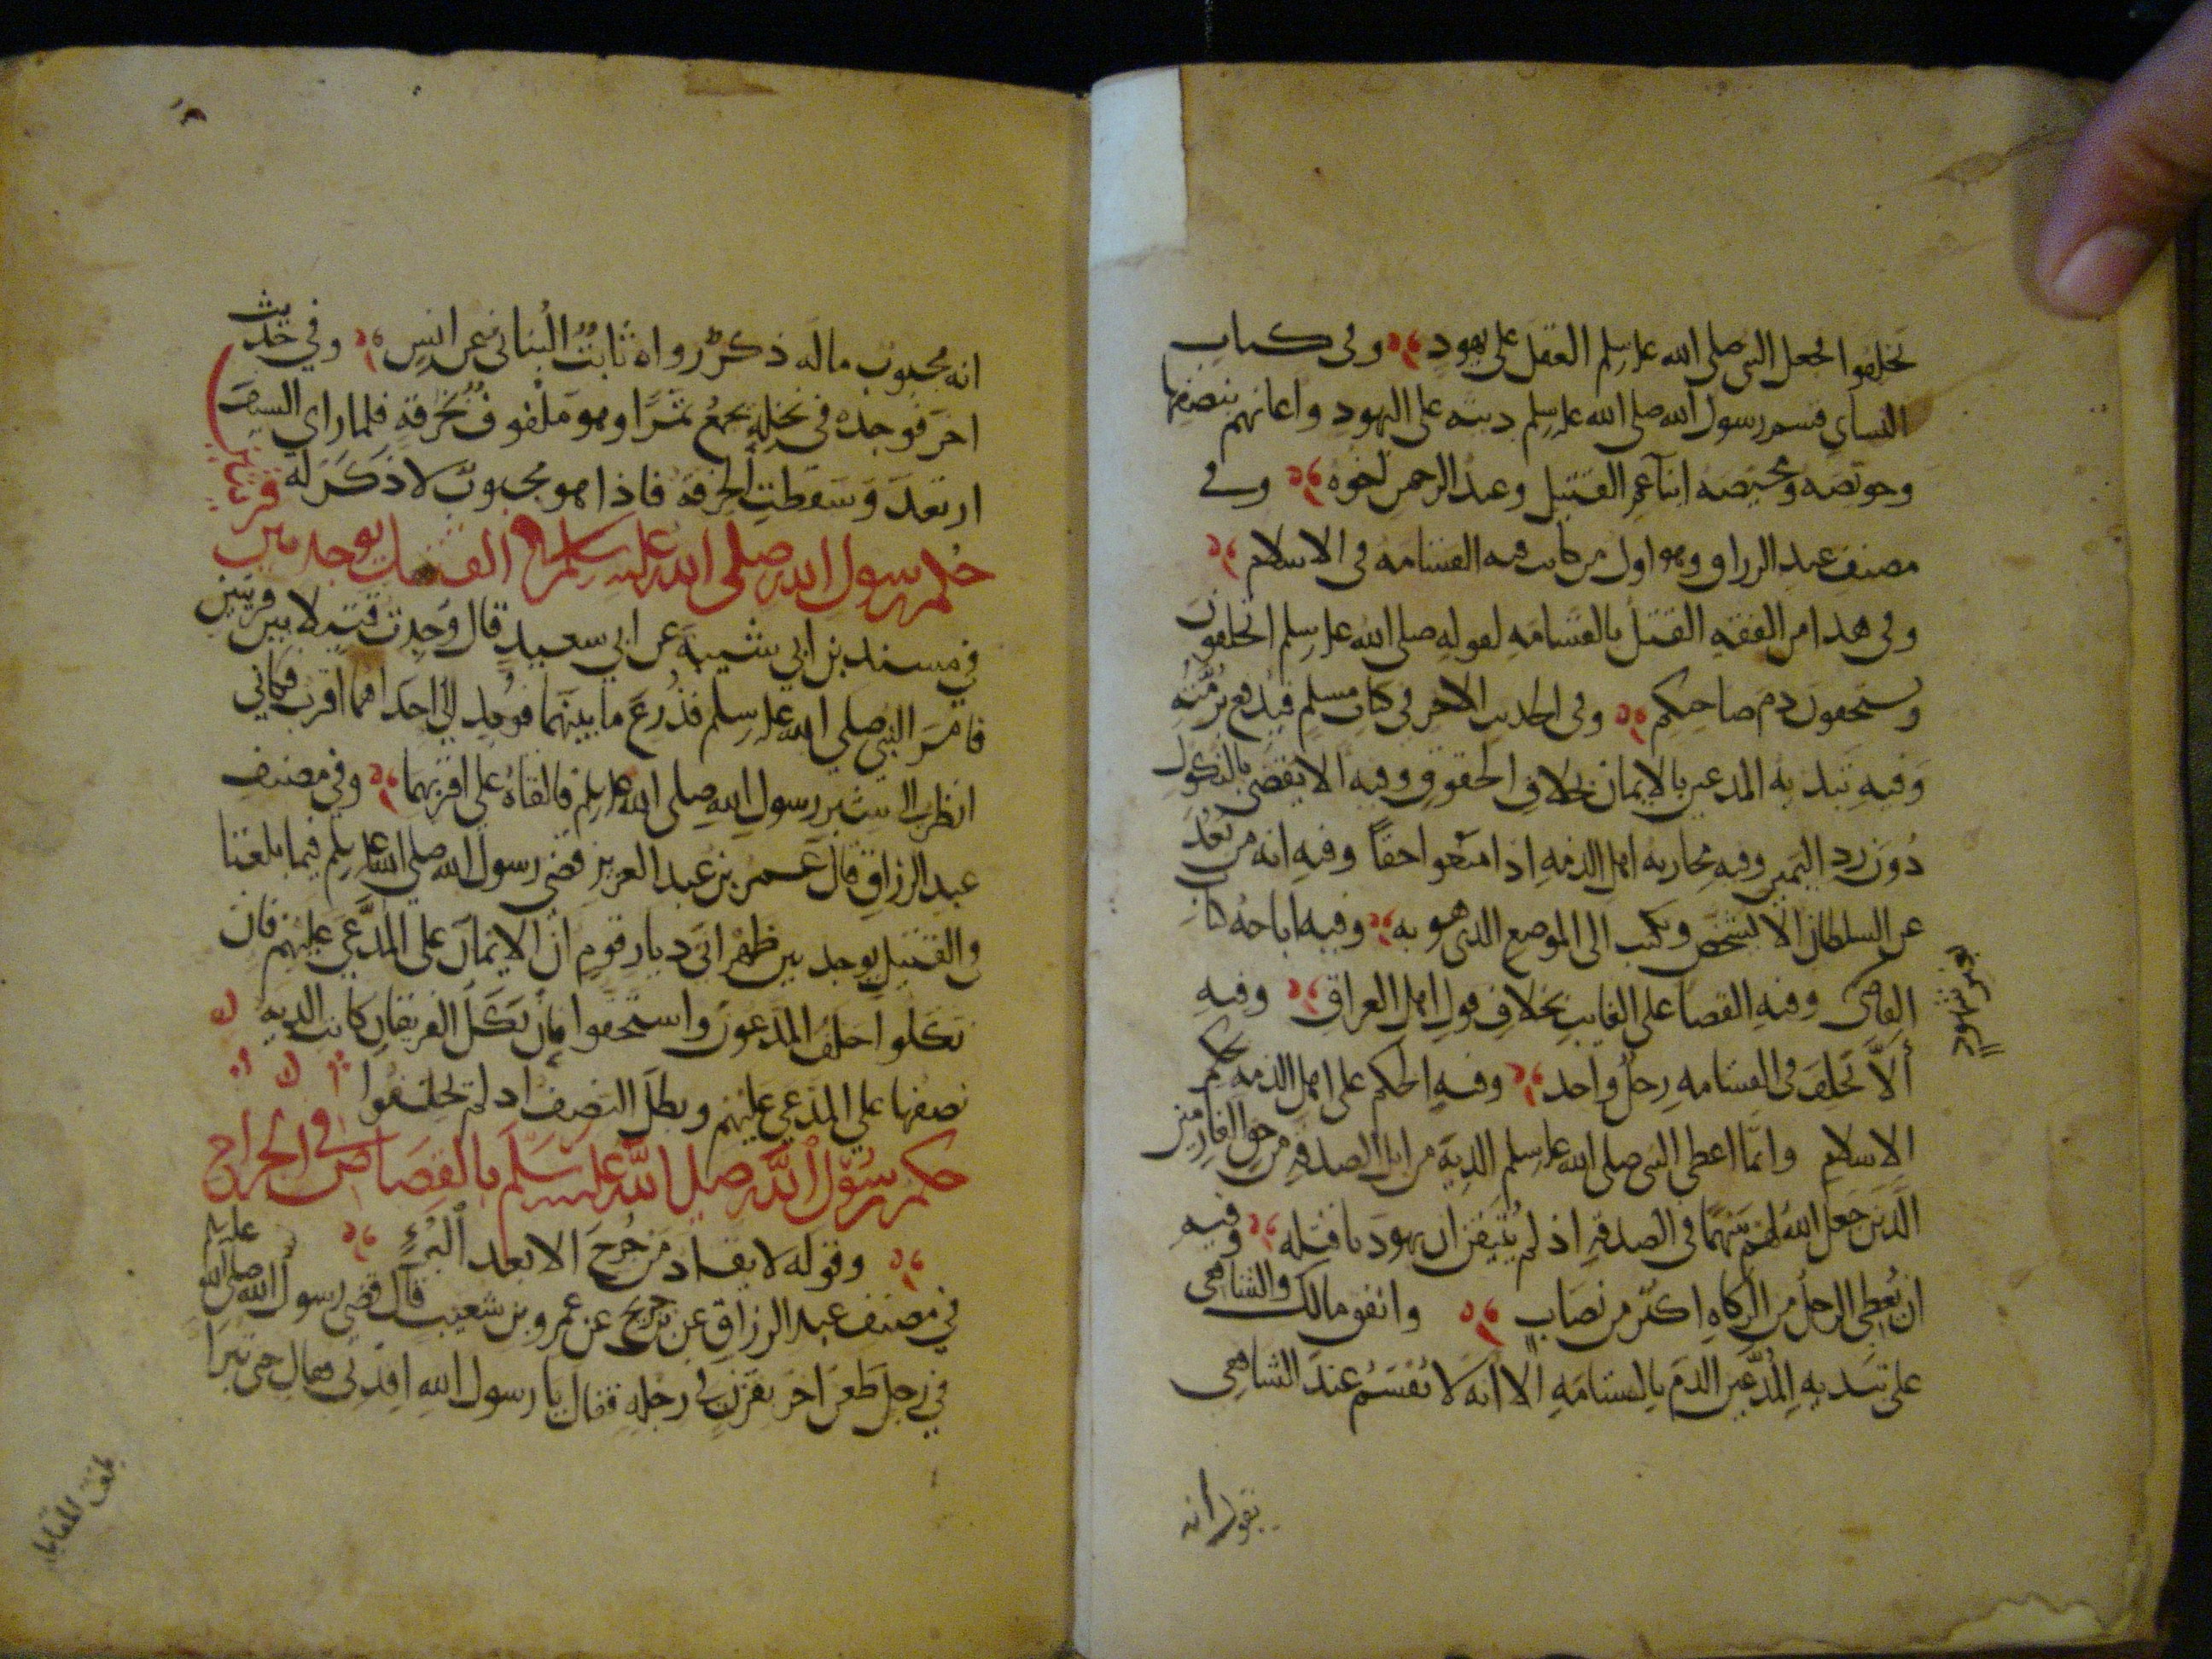 تحلفوا فجعل النبي صلى الله عليه وسلم العقل على يهود وفي كتاب
النساي فقسم رسول الله صلى الله عليه وسلم ديته على اليهود واعانهم بنصفها
وحويصه ومحيصه ابنا عم القتيل وعبد الرحمن اخوه وفي
مصنف عبد الرزاق وهو اول من كانت فيه القسامه في الاسلام
وفي هذا من الفقه القتل بالقسامه لقوله صلى الله عليه وسلم اتحلفون
وتستحقون دم صاحبكم وفي الحديث الاخر في كتاب مسلم فيدفع برمته
وفيه تبديه المدعين بالايمان بخلاف الحقوق وفيه الا يقضى بالنكول
دون رد اليمين وفيه محاربه اهل الذمه اذا منعوا حقا وفيه انه من بعد
عن السلطان الا يشخص ويكتب الى الموضع الذي هو به وفيه اباحه كتاب
القاضي وفيه القضا على الغايب بخلاف قول اهل العراق وفيه
ألا تحلف في القسامه رجل واحد وفيه الحكم على اهل الذمه بحكم
الاسلام وانما اعطى النبي صلى الله عليه وسلم الدية من ابل الصدقه من حق الغارمين
الذين جعل الله لهم سهما في الصدقه اذ لم يتيقن ان يهود ما قتله وفيه
ان يعطى الرجل من الزكاه اكثر من نصاب واتفق مالك والشافعي
على تبديه المدعين الدم بالقسامه الا انه لا يقسم عند الشافعي
يقول انه
انه مجبوب ماله ذكر رواه ثابت البناني عن انس وفي حديث
اخر فوجده في نخلة يجمع تمرا وهو ملفوف بخرقة فلما راي السيف
ارتعد وسقطت الخرقه فاذا هو مجبوب لا ذكر له
حكم رسول الله صلى الله عليه وسلم في القتيل يوجد بين قريتين
في مسند بن ابي شيبة عن ابي سعيد قال وجدت قتيلا بين قريتين
فامر النبي صلى الله عليه وسلم فذرع ما بينهما فوجد الى احداهما اقرب فكاني
انظر الى شبر رسول الله صلى الله عليه وسلم فالقاه على اقربهما وفي مصنف
عبد الرزاق قال عمر بن عبد العزيز قضى رسول الله صلى الله عليه وسلم فيما بلغنا
والقتيل يوجد بين ظهراني ديار قوم ان الايمان على المدعى عليهم فان
نكلوا احلف المدعون واستحقوا فان نكل الفريقان كانت الديه
نصفها على المدعى عليهم وبطل النصف اذ لم يحلفوا
حكم رسول الله صلى الله عليه وسلم بالقصاص في الجراح
وقوله لا يقاد من جرح الا بعد البرء
في مصنف عبد الرزاق عن بن جريج عن عمرو بن شعيب قال قضى رسول الله صلى الله عليه
في رجل طعن اخر بقرن في رجله فقال يا رسول الله اقدني فقال حتى تبرا
بلغت المقابله